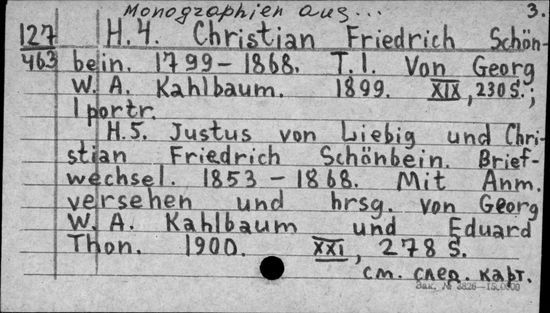 Monographien aus... 3.
127 H.4. Christian Friedrich Schön-
463 bein. 1799-1868. T.1. Von Georg
W. A. Kahlbaum. 1899. XIX, 230 S.;
1 portr.
H.5. Justus von Liebig und Chri-
stian Friedrich Schönbein. Brief-
wechsel. 1853-1868. Mit Anm.
versehen und hrsg. von Georg
W. A. Kahlbaum und Eduard
Thon. 1900. XXI, 278 S.
см. след. карт.
Зак. №